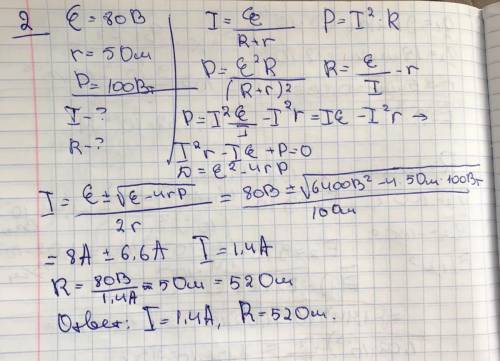 2 ℰ = 80В I = ℰ/(R+r) P = I²·R
r = 5 Ом P = ℰ²R/(R+r)² R = ℰ/I - r
P = 100Вт
I - ? P = I² ℰ/I - I²r = Iℰ - I²r →
R - ? I²r - Iℰ + P = 0
D = ℰ² - 4rP
I = (ℰ ± √(ℰ - 4rP))/2r = (80В ± √(6400В² - 4·5 Ом·100Вт))/10 Ом
= 8А ± 6,6А I = 1,4А
R = 80В/1,4А - 5 Ом = 52 Ом
Ответ: I = 1,4А, R = 52 Ом.